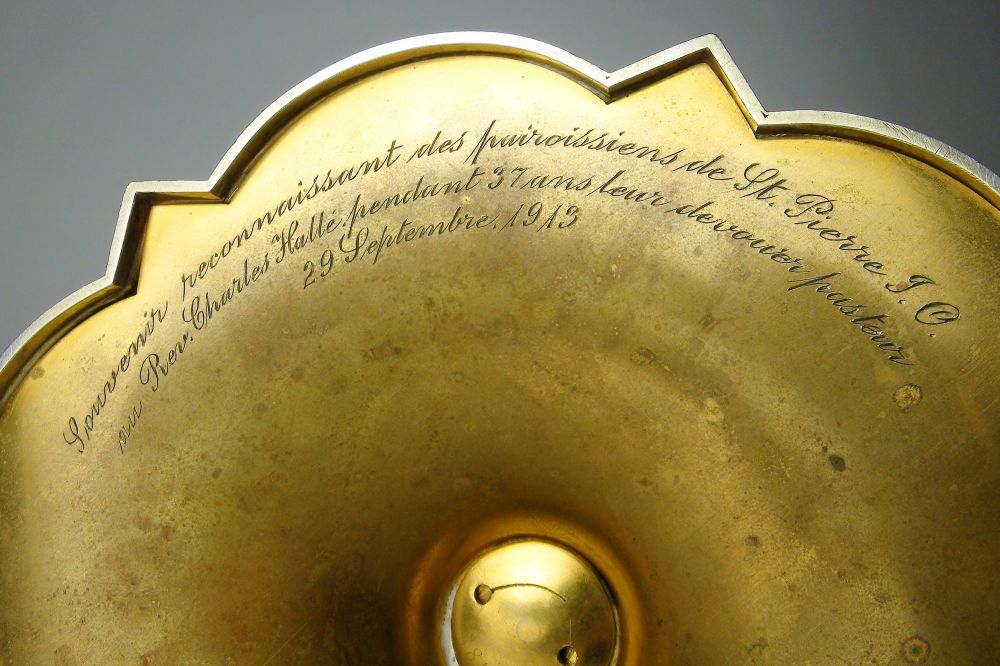 Souvenir reconnaissant des pairoissiens de St. Pierre I. O.
au Rev. Charles Hallé, pendant 37 ans leur devouer pasteur
29 Septembre, 1913